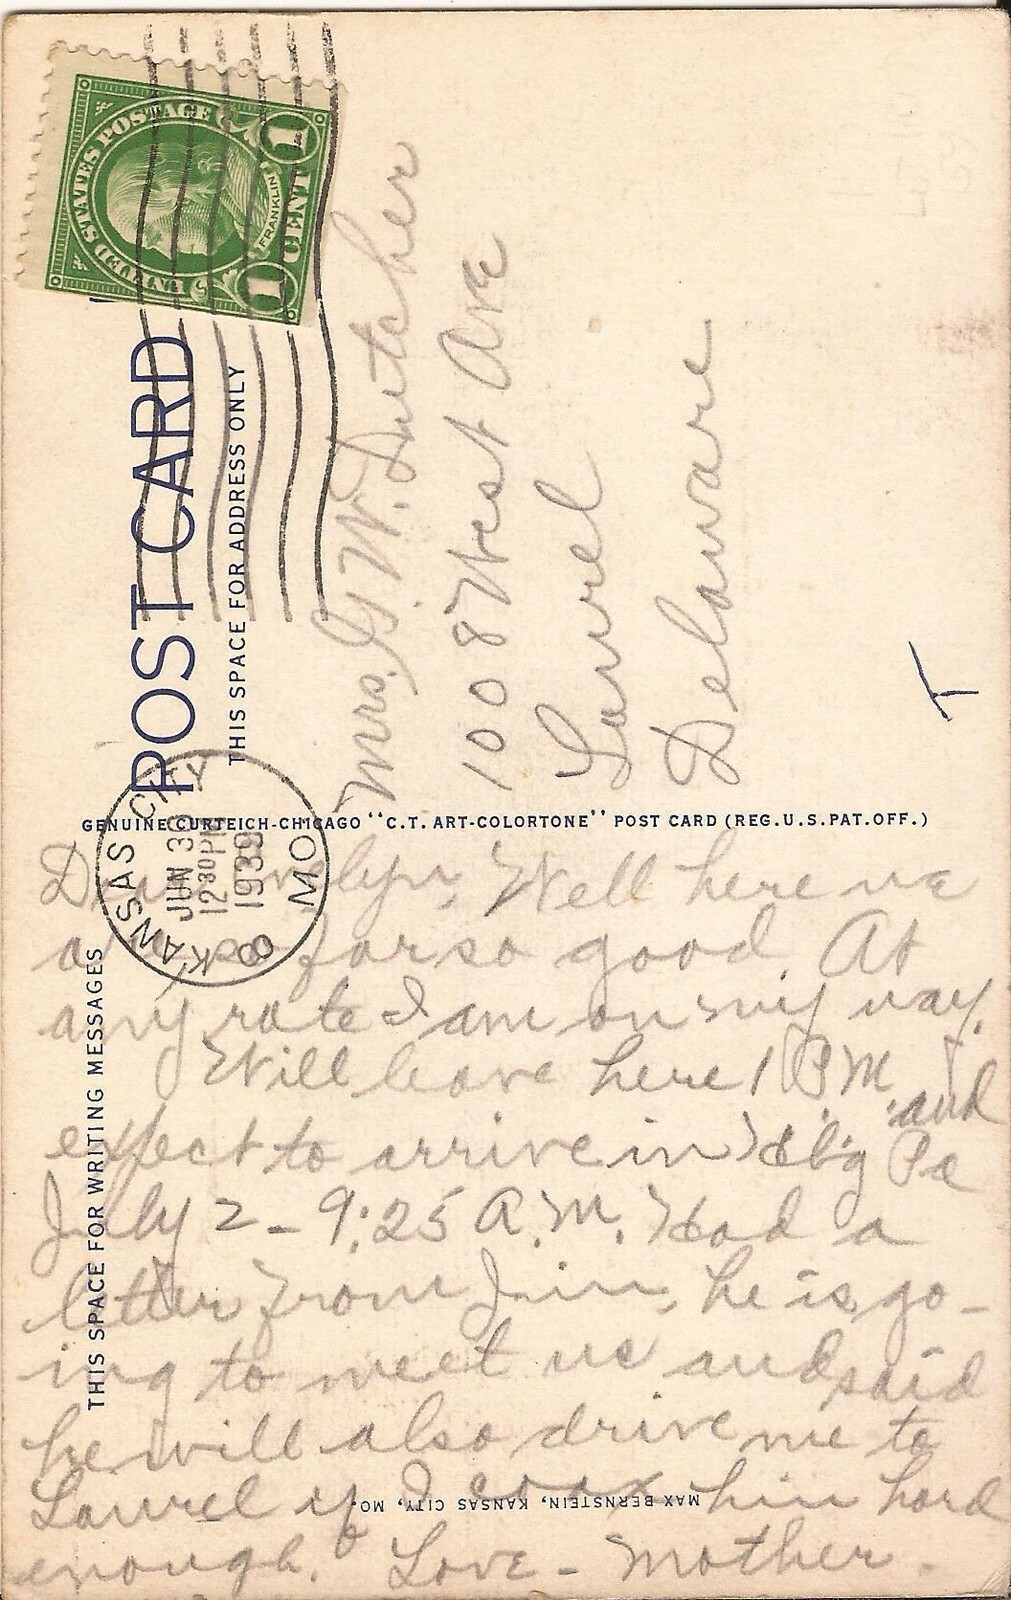 UNITED STATES POSTAGE
FRANKLIN
1 ONE 1
POST CARD
THIS SPACE FOR ADDRESS ONLY
KANSAS CITY
JUN 30
12 30 PM
1939
MO.
8
Mrs. G. W. Dutcher
100 8 West Ave
Laurel
Delaware
GENUINE CURTEICH-CHICAGO "C.T. ART-COLORTONE" POST CARD (REG. U.S. PAT. OFF.)
THIS SPACE FOR WRITING MESSAGES
Well here we
are so far so good. At
any rate I am on my way.
Will leave here 1 P.M. and
expect to arrive in Hbg Pa
July 2 - 9:25 A.M. Had a
letter from Jim, he is go-
ing to meet us and said
he will also drive me to
Laurel if I coax him hard
enough. Love - Mother.
MAX BERNSTEIN, KANSAS CITY, MO.